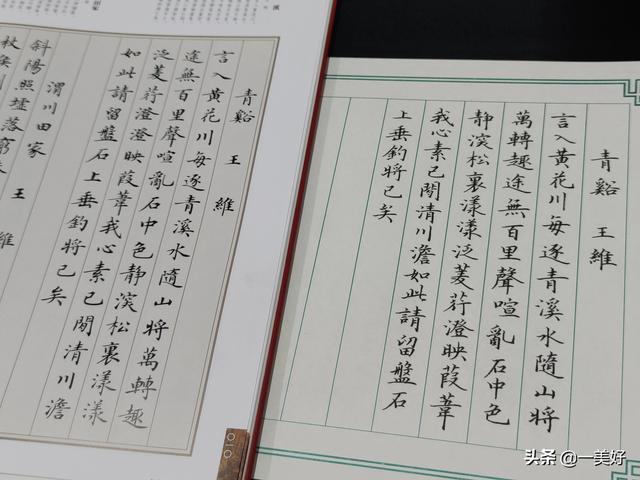 青谿 王維
言入黃花川每逐青溪水隨山將
萬轉趣途無百里聲喧亂石中色
靜深松裏漾漾泛菱荇澄映葭葦
我心素已閒清川澹如此請留盤石
上垂釣將已矣
青谿 王維
言入黃花川每逐青溪水隨山將萬轉趣
途無百里聲喧亂石中色靜深松裏漾漾
泛菱荇澄澄映葭葦我心素已閒清川澹
如此請留盤石上垂釣將已矣
渭川田家 王維
斜陽照墟落
010
头条 @一美好